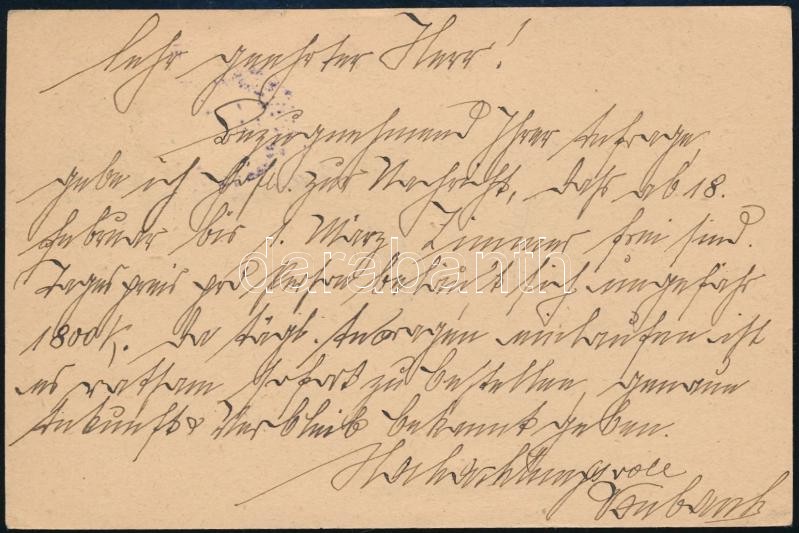 Sehr geehrter Herr!
Bezugnehmend Ihrer Anfrage
gebe ich höfl. zur Nachricht, dass ab 18.
Februar bis 1. März Zimmer frei sind.
Tagespreis pro Person beläuft sich ungefähr
1800 K. Da tägl. Anfragen einlaufen ist
es ratsam sofort zu bestellen, genaue
Ankunft & Verbleib bekannt geben.
Hochachtungsvoll
darabanth